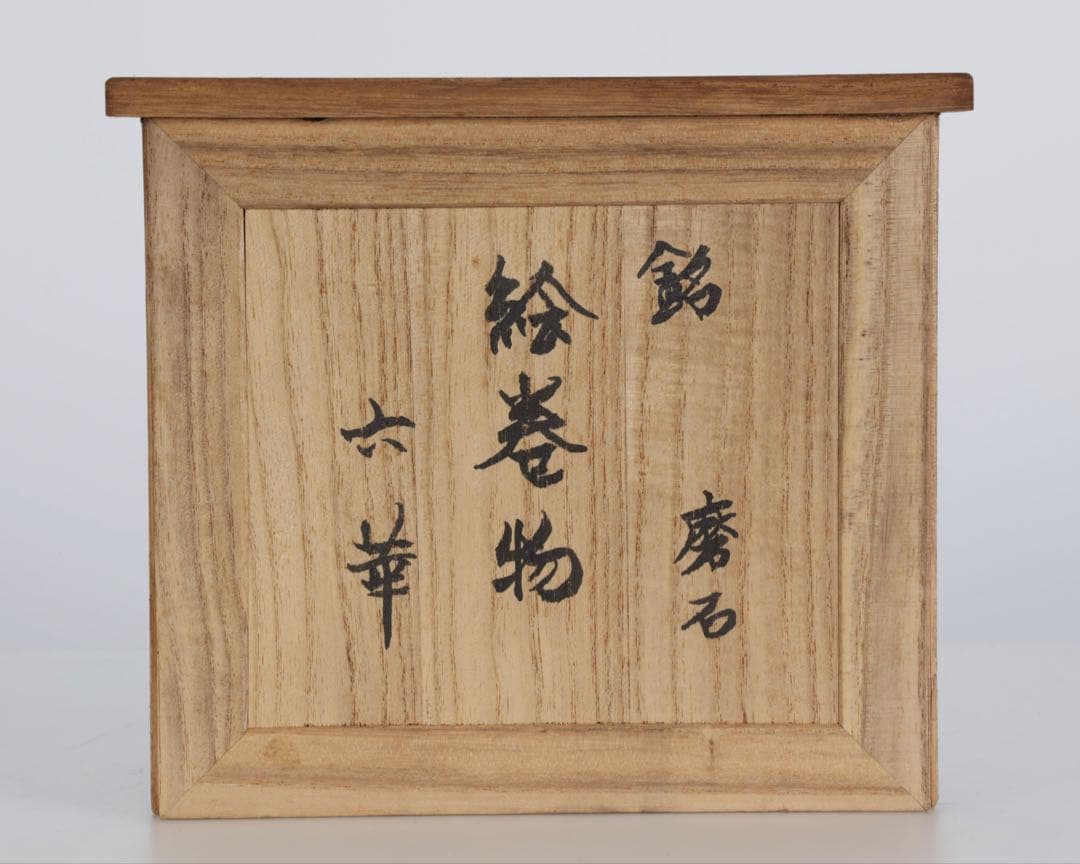 銘 磨石
絵巻物
六華